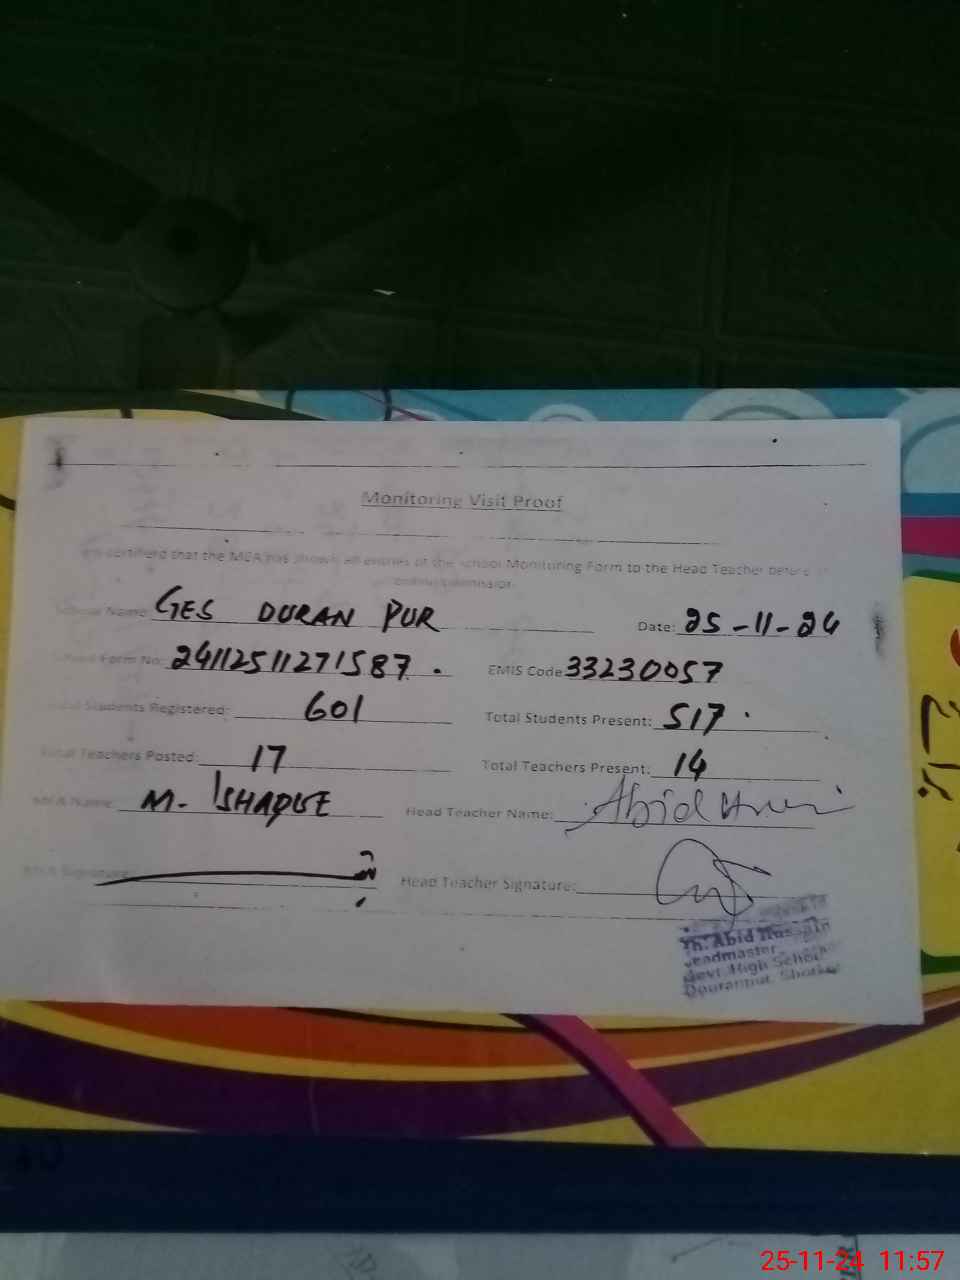 Monitoring Visit Proof
certified that the MEA has shown all entries of the school Monitoring Form to the Head Teacher before
submission
School Name: GES DURAN PUR Date: 25-11-24
Form No: 24112511271587. EMIS Code 33230057
Total Students Registered: 601 Total Students Present: 517.
Total Teachers Posted: 17 Total Teachers Present: 14
MEA Name: M. ISHAQUE Head Teacher Name: Abid
MEA Signature: Head Teacher Signature:
Abid Hussain
Headmaster
Govt. High School
25-11-24 11:57